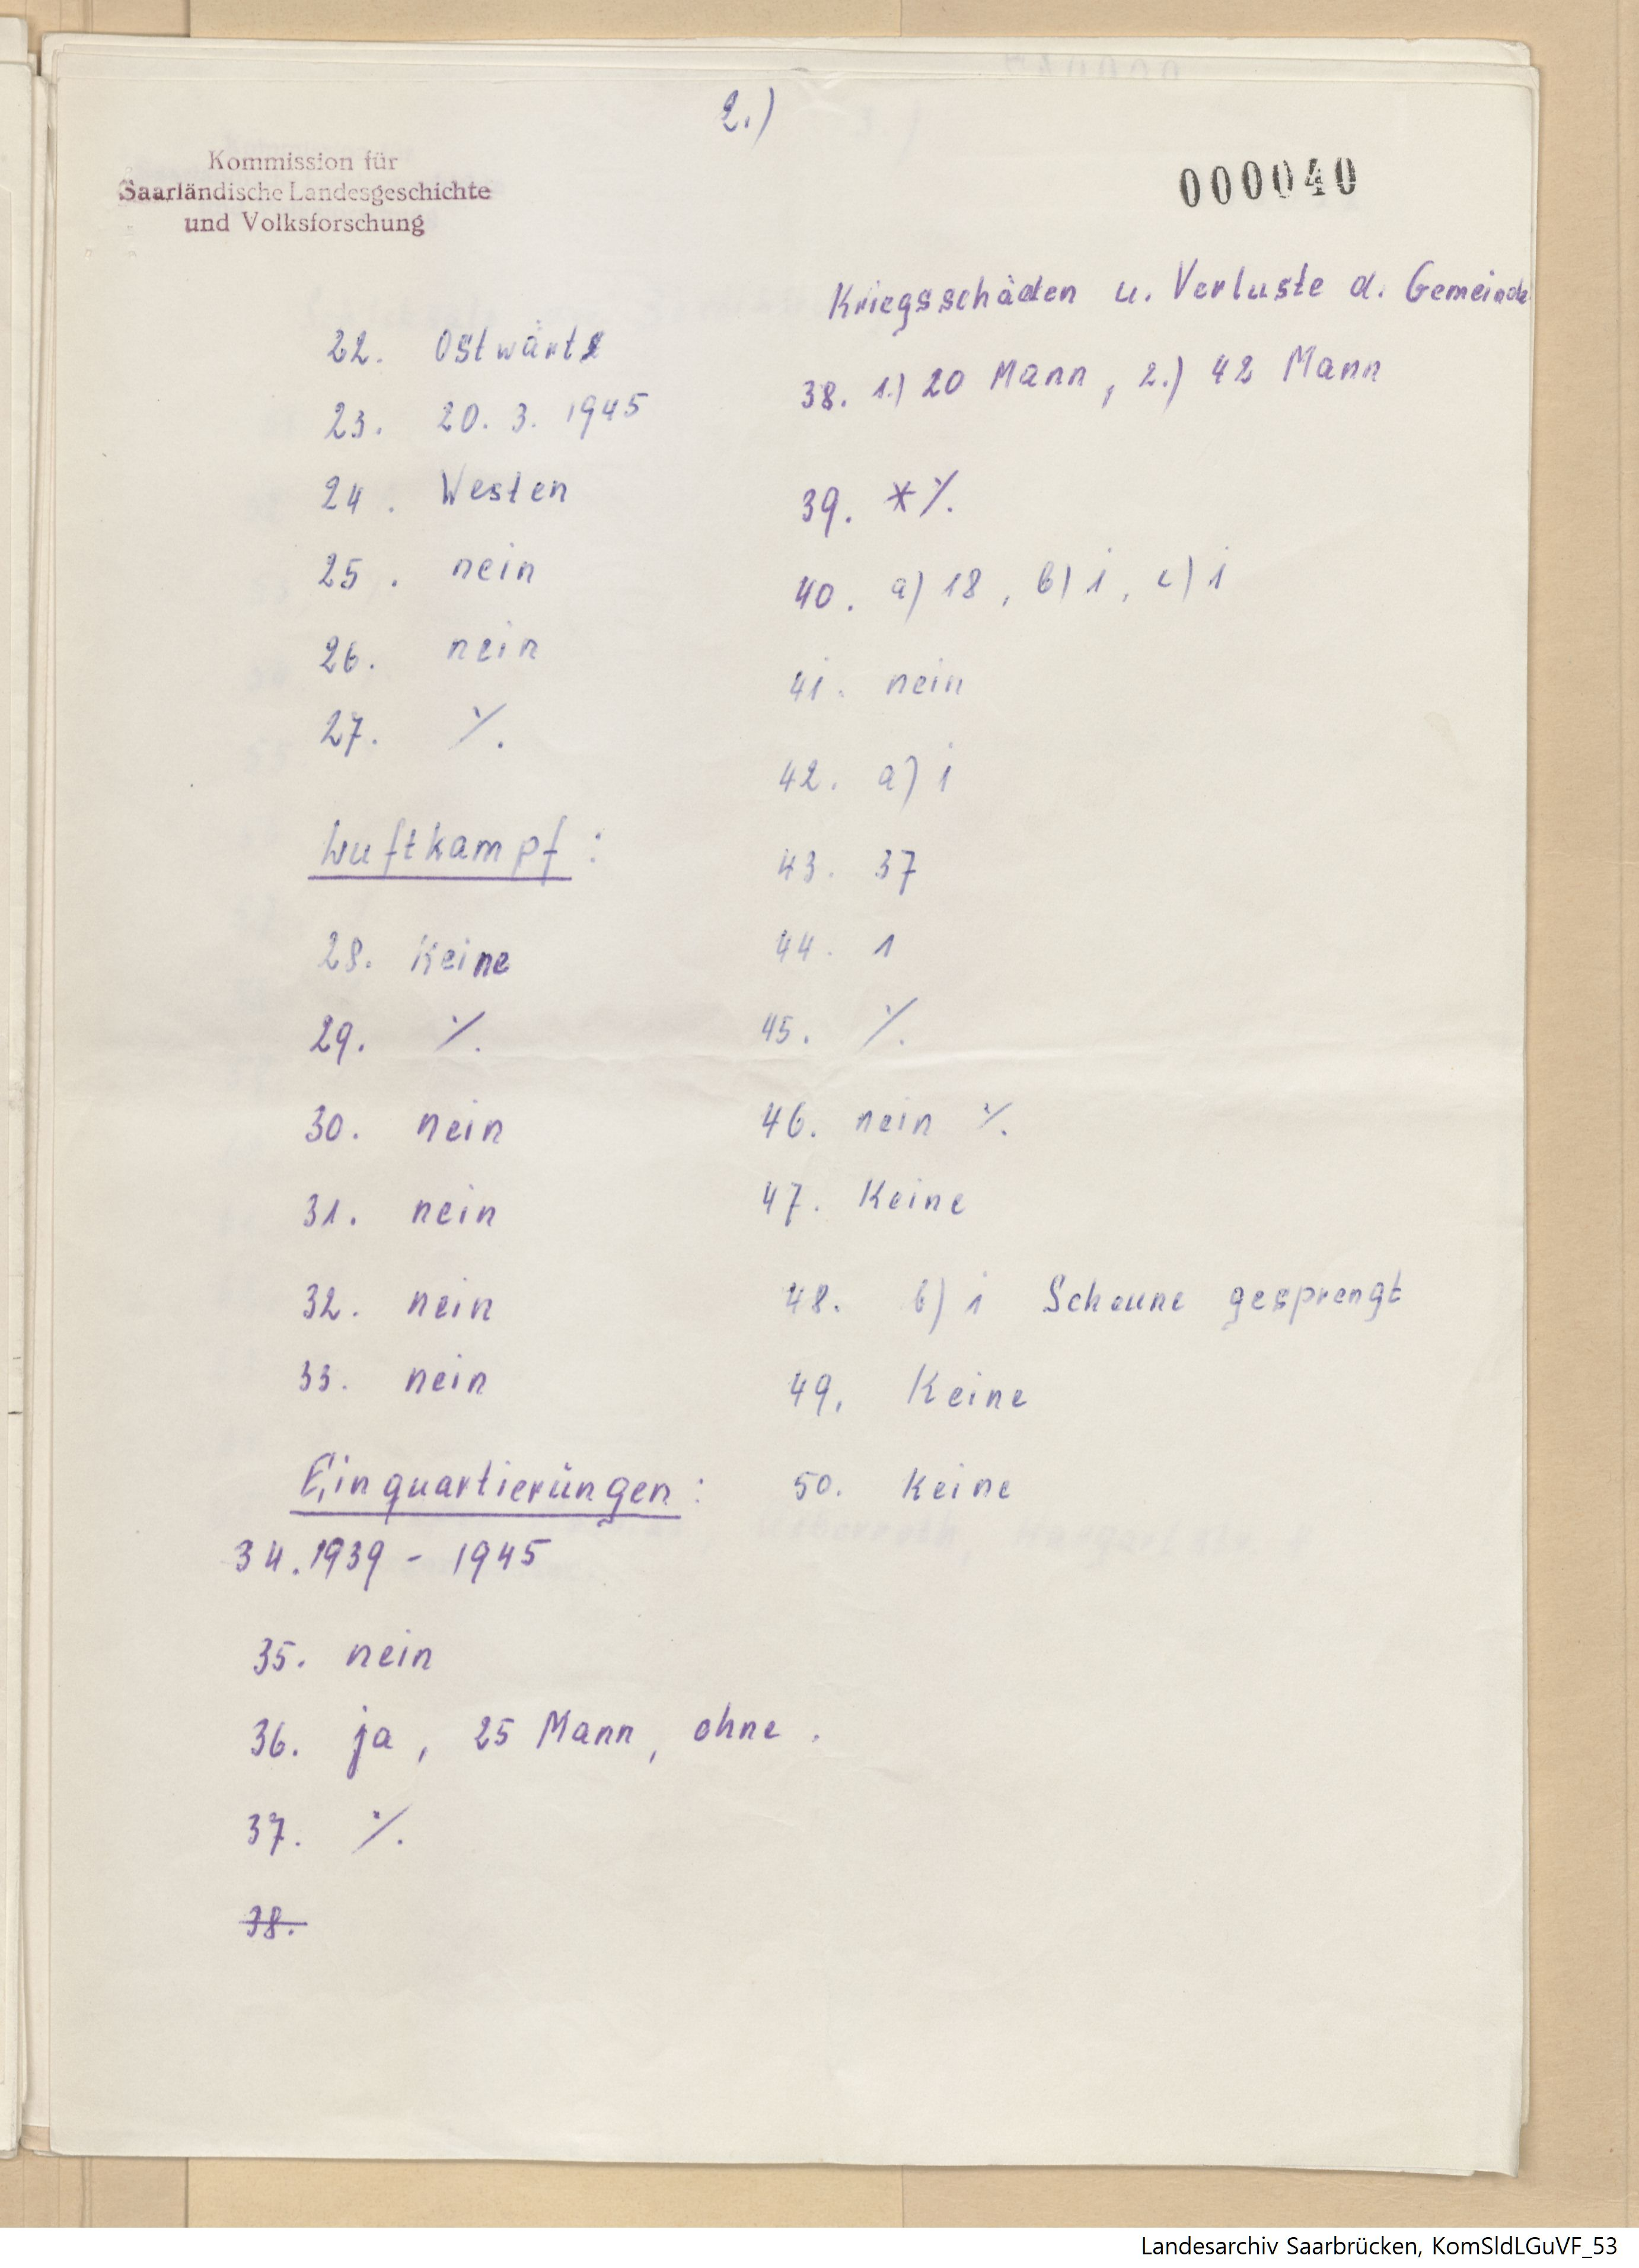 2.)
Kommission für
Saarländische Landesgeschichte
und Volksforschung
000040
22. Ostwärts
23. 20. 3. 1945
24. Westen
25. nein
26. nein
27. ⁒
Luftkampf:
28. Keine
29. ⁒
30. nein
31. nein
32. nein
33. nein
Einquartierüngen:
34. 1939 - 1945
35. nein
36. ja, 25 Mann, ohne.
37. ⁒
38.
Kriegsschäden u. Verluste d. Gemeinde
38. 1.) 20 Mann, 2.) 42 Mann
39. * ⁒
40. a) 18, b) 1, c) 1
41. nein
42. a) 1
43. 37
44. 1
45. ⁒
46. nein ⁒
47. Keine
48. b) 1 Scheune gesprengt
49. Keine
50. Keine
Landesarchiv Saarbrücken, KomSldLGuVF_53